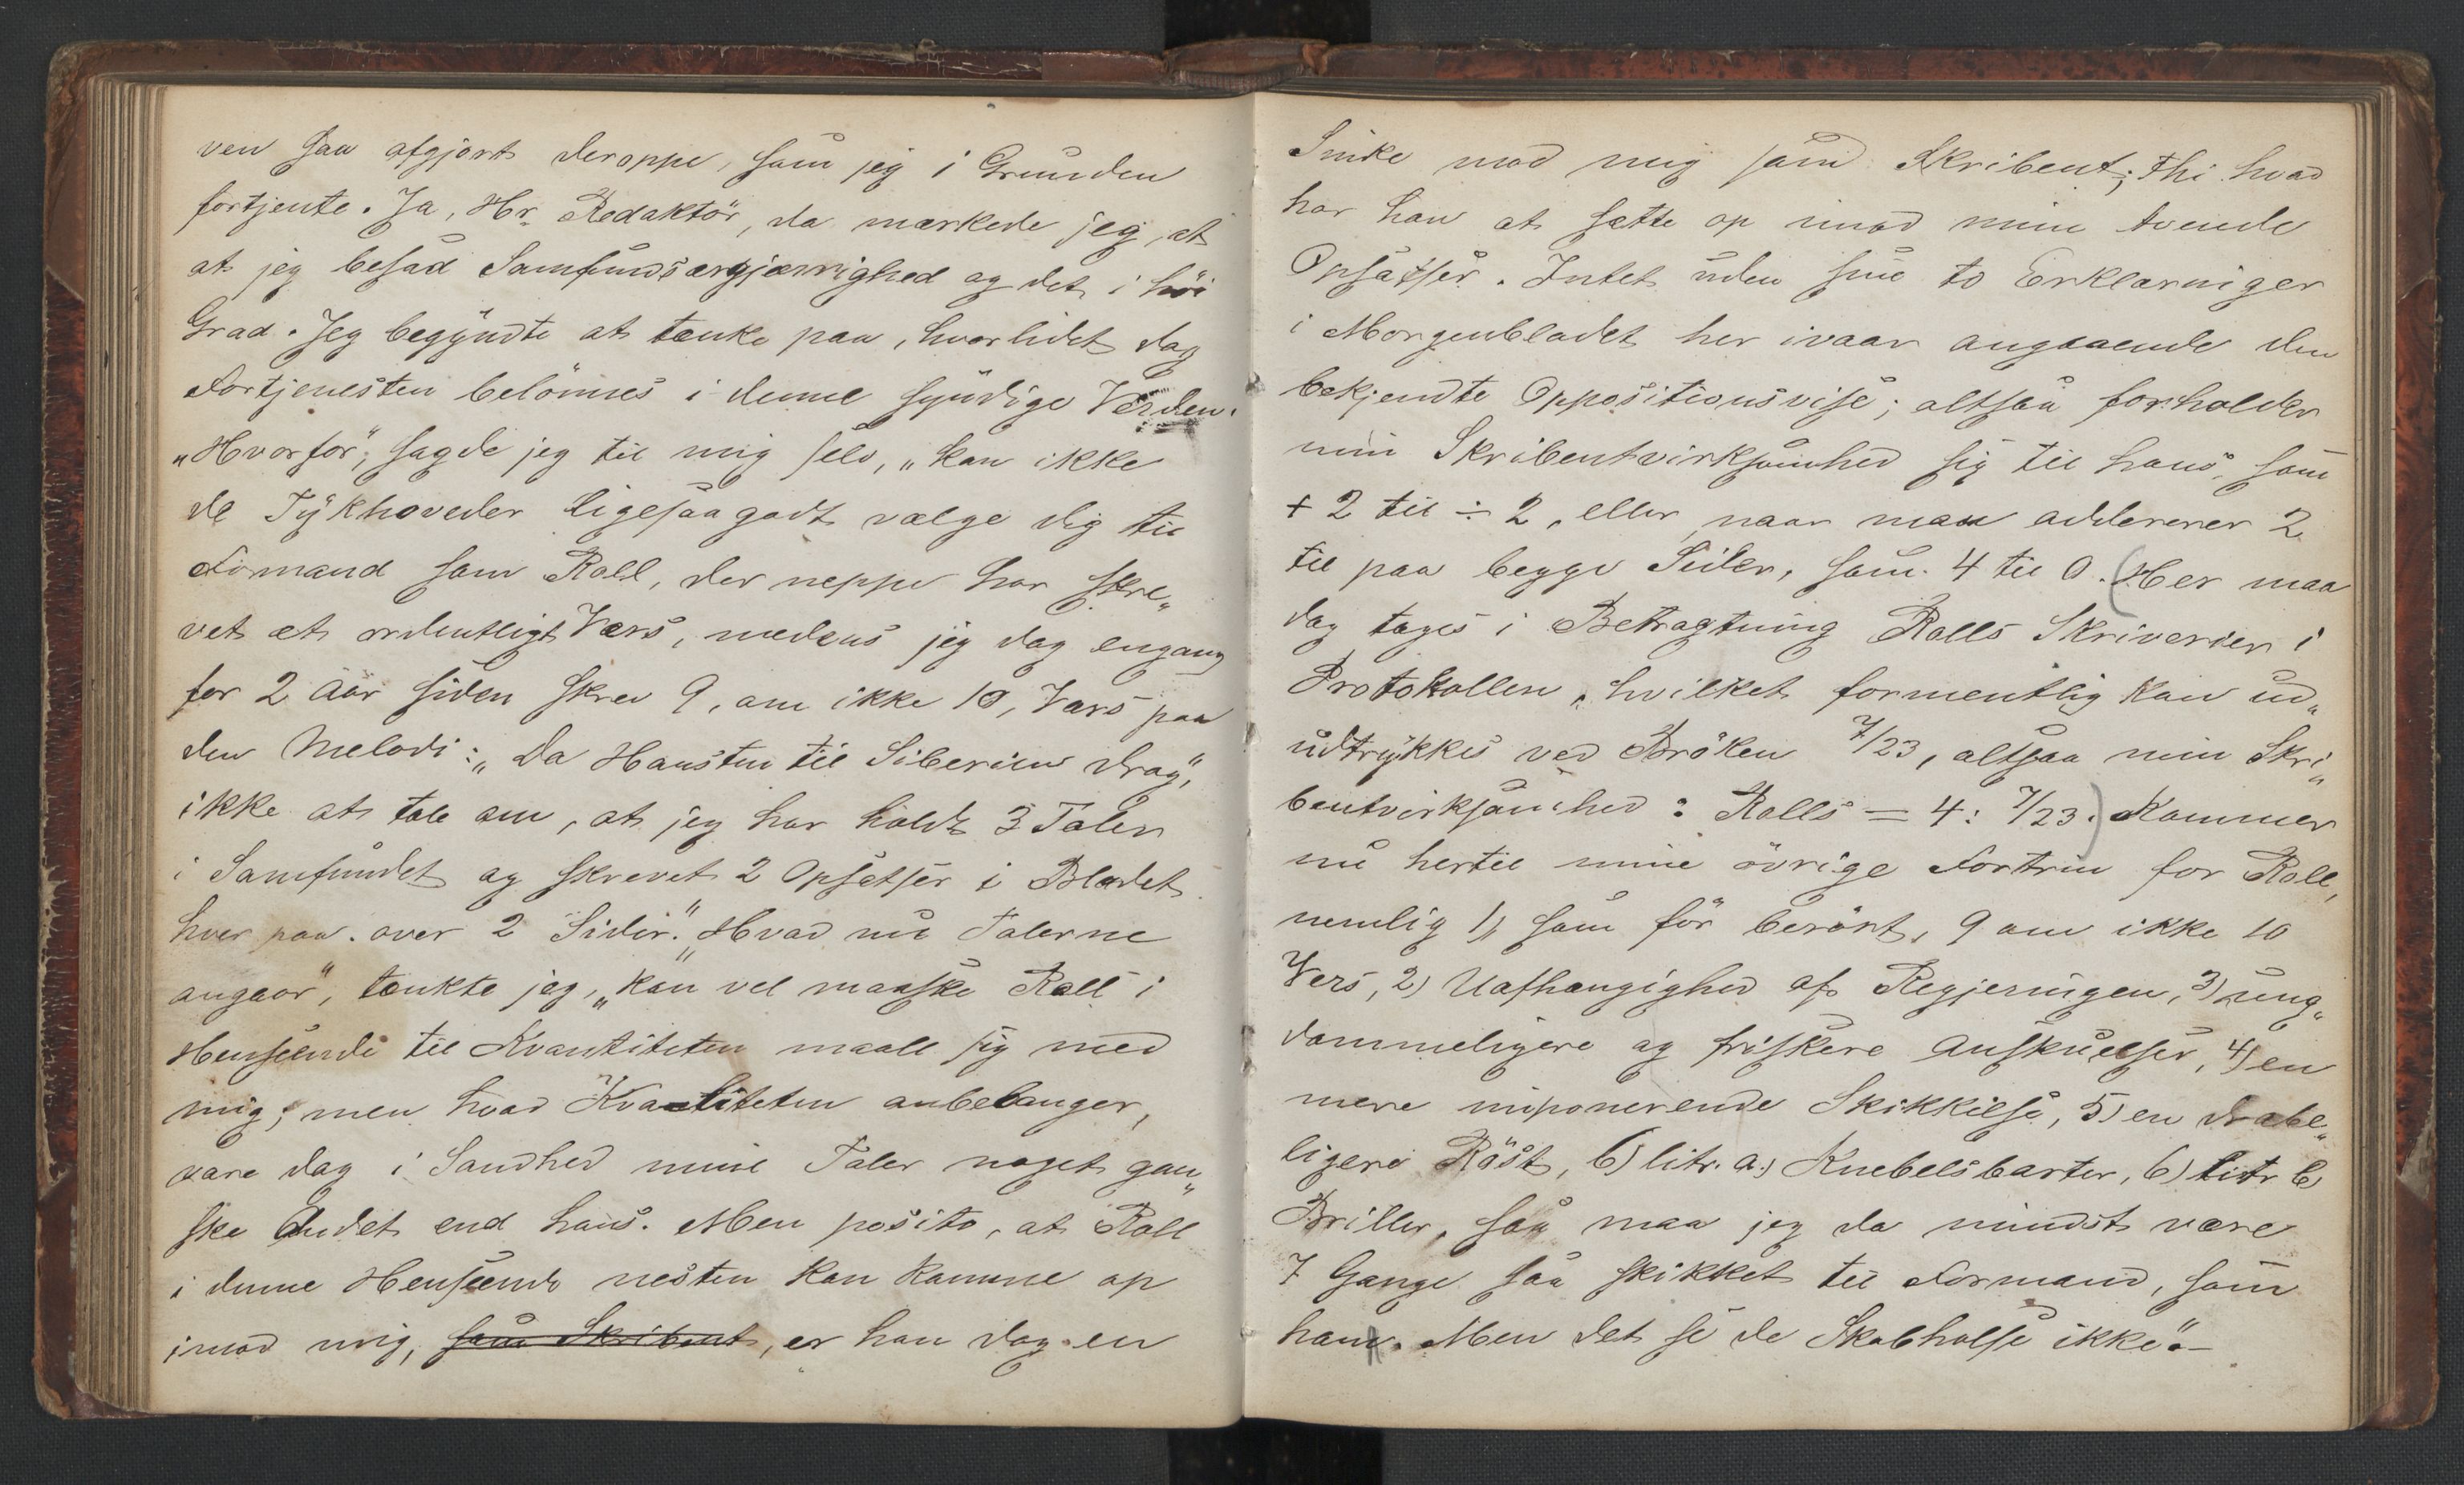 ven saa afgjort deroppe, som jeg i Grunden
fortjente. Ja, Hr. Redaktör, da mærkede jeg, at
at jeg besad Samfundsærgjærrighed og det i höi
Grad. Jeg begyndte at tænke paa, hvor lidet dog
Fortjenesten belönnes i denne syndige Verden.
„Hvorfor", sagde jeg til mig selv, „kan ikke
de Tykhoveder ligesaagodt vælge dig til
Formand som Roll, der neppe har skre„
vet et ordentligt Vers, medens jeg dog engang
for 2 Aar siden skrev 9, om ikke 10, Vers paa
den Melodi: „Da Hansten til Siberien drog",
ikke at tale om, at jeg har holdt 3 Taler
i Samfundet og skrevet 2 Opsatser i Bladet
hver paa over 2 Sider." „Hvad nu Talerne
angaar", tænkte jeg, „kan vel maaske Roll i
Henseende til Kvantiteten maale sig med
mig; men hvad Kvaliteten anbelanger,
vare dog i Sandhed mine Taler noget gan„
ske Andet end hans. Men posito, at Roll
i denne Henseende nesten kan komme op
imod mig, som Skribent, er han dog en
Sinke mod mig som Skribent; thi hvad
har han at sætte op imod mine tvende
Opsatser. Intet uden sine to Erklæringer
i Morgenbladet her ivaar angaaende den
bekjendte Oppositionsvise; altsaa forholder
min Skribentvirksomhed sig til hans, som
+ 2 til ÷ 2, eller naar man adderer 2
til paa begge Sider, som 4 til 0. (Her maa
dog tages i Betragtning Rolls Skriverier i
Protokollen, hvilket formentlig kan ud„
udtrykkes ved Bröken 7/23, altsaa min Skri„
bentvirksomhed : Rolls = 4 : 7/23.) Kommer
nu hertil mine övrige Fortrin for Roll,
nemlig 1) som för berört, 9 om ikke 10
Vers, 2) Uafhængighed af Regjeringen, 3) ung„
dommeligere og friskere Anskuelser, 4) en
mere imponerende Skikkelse, 5) en drabe„
ligere Röst, 6) litr. a.) Knebelsbarter, 6) litr b)
Briller, saa maa jeg da mindst være
7 Gange saa skikket til Formand, som
han. Men det se de Skabhalse ikke".–